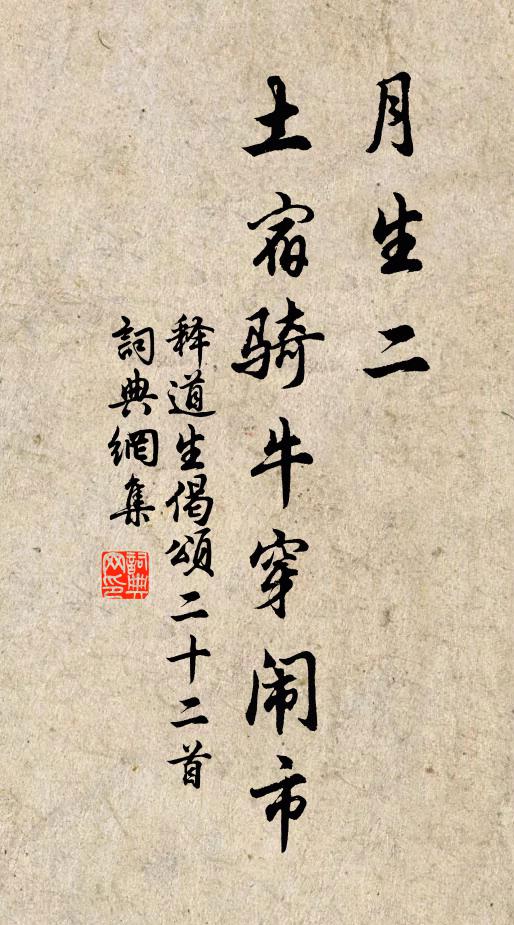 月生二
土宿骑牛穿闹市
释道生偈頌二十二首
詞典網集
詞典网印